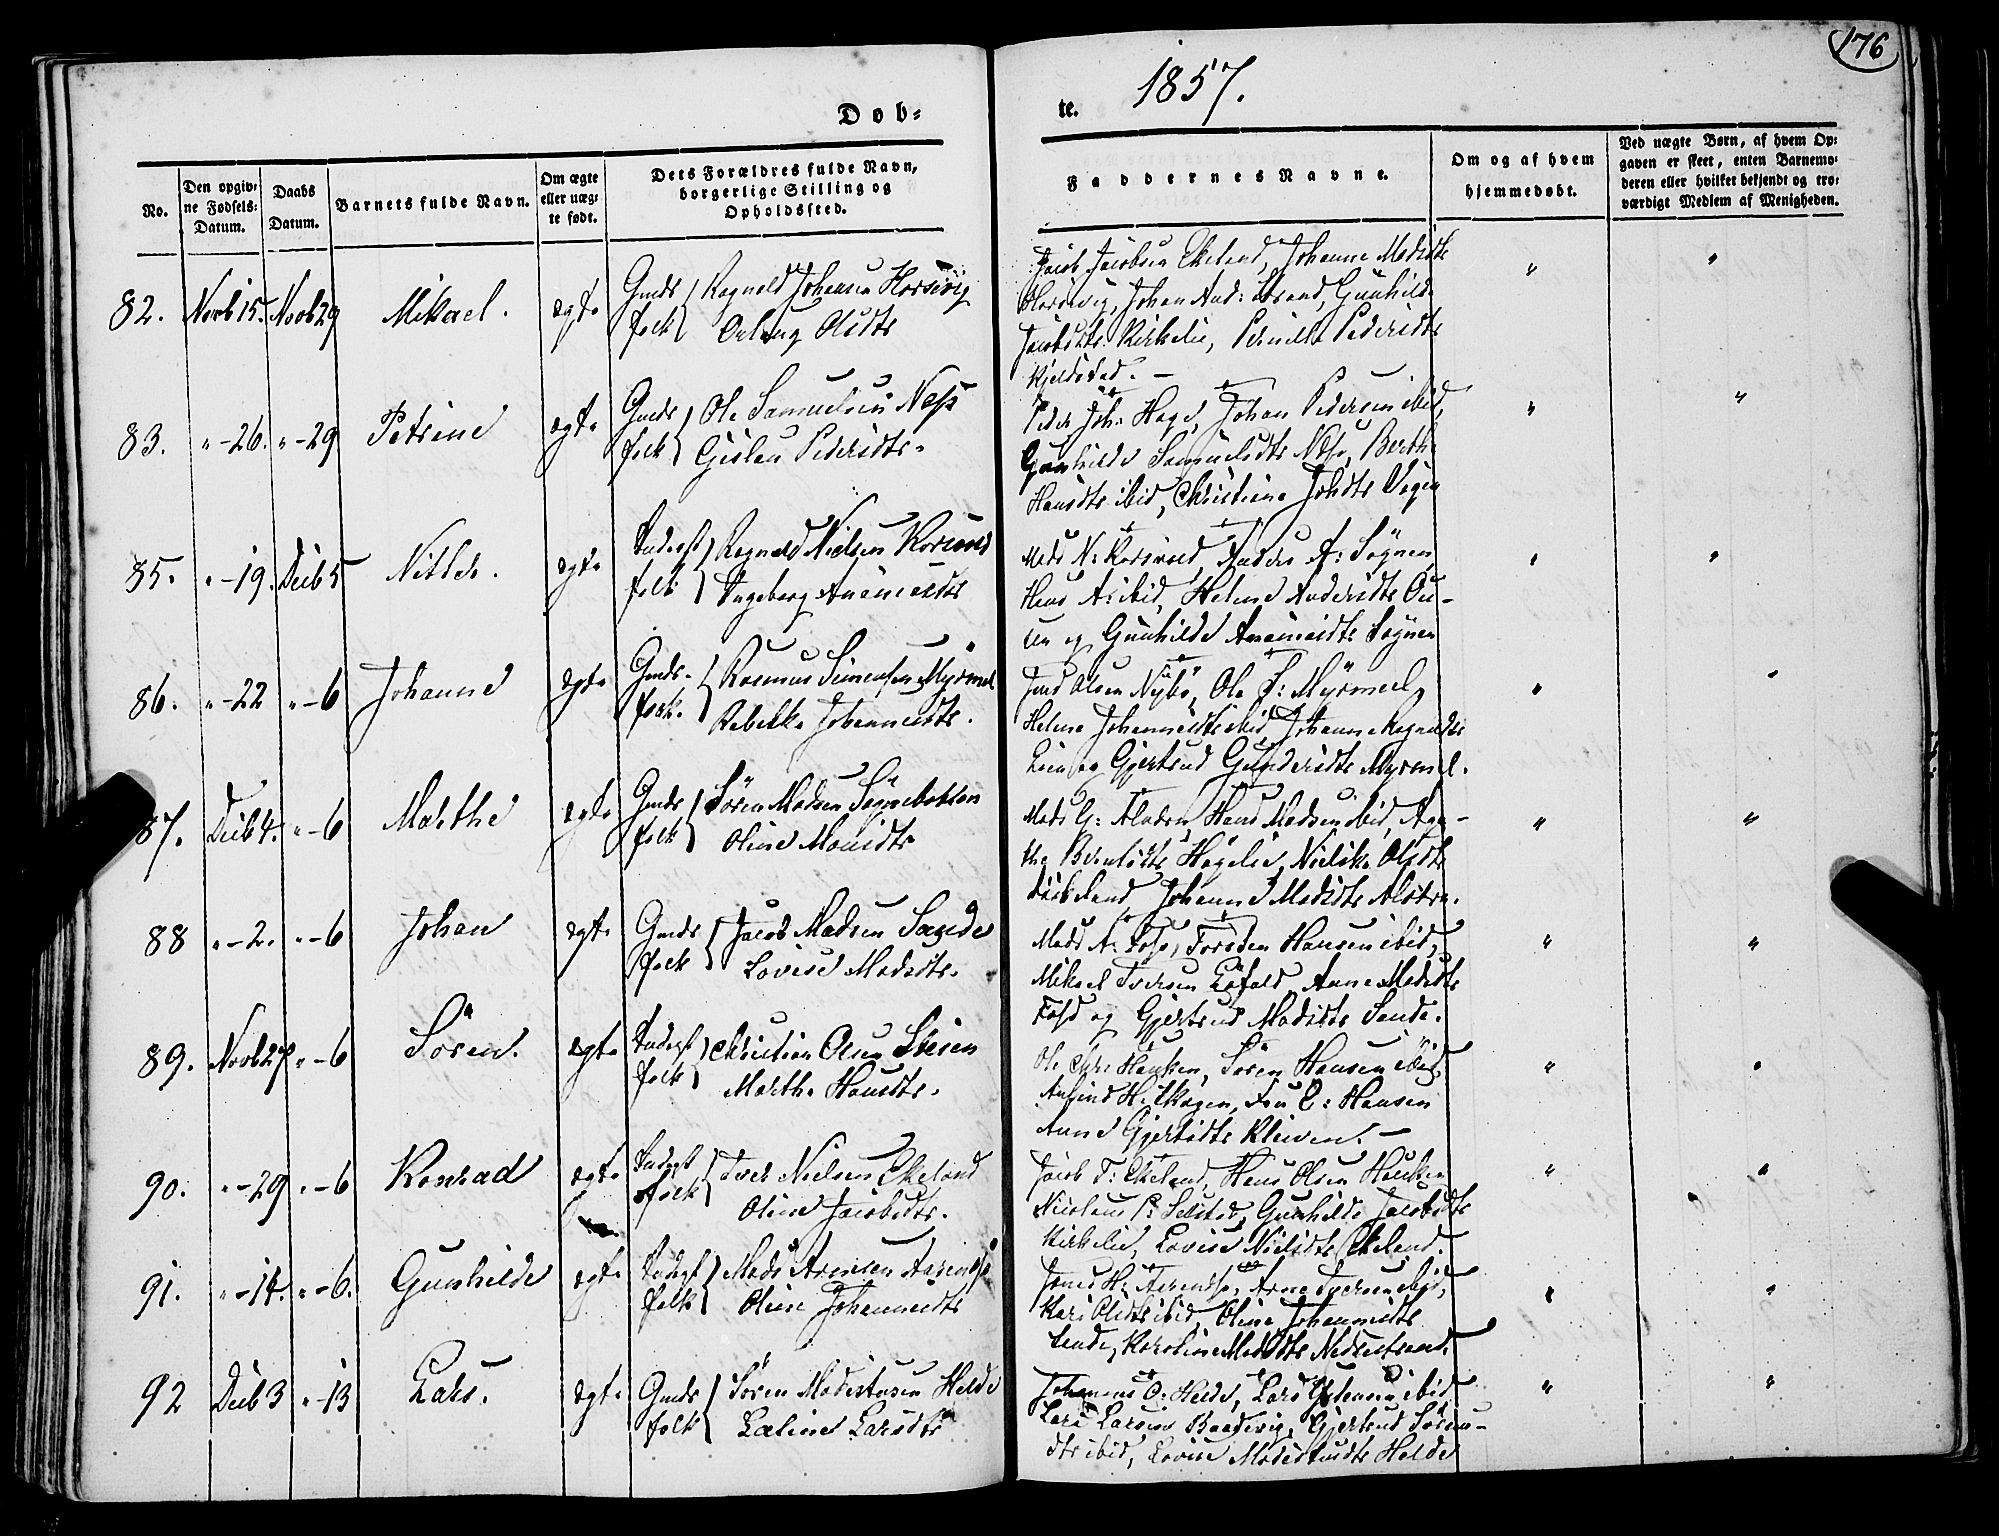 176
Døb-
te.
1857.
No.
Den opgiv-
ne Fødsels-
Datum.
Daabs
Datum.
Barnets fulde Navn.
Om ægte
eller uæg-
te født.
Dets Forældres fulde Navn,
borgerlige Stilling og
Opholdssted.
Faddernes Navne.
Om og af hvem
hjemmedøbt.
Ved uægte Børn, af hvem Op-
gaven er skeet, enten Barnemo-
deren eller hvilket bekjendt og tro-
værdigt Medlem af Menigheden.
82. Novb 15. Novb 29 Mikael. ægte Gmds
folk Ragnald Johansen
Olsdtr
Jacob Jacobsen Ekeland, Johanne Madsdtr
Johan And: Strand, Gunhilde
Jacobsdtr Kirkelie, Pernille Pedersdtr
Kjeldstad. —
83. " -26. " -29 Petrine ægte Gmds
folk Ole Samuelsen Næss
Gislau Pedersdtr.
Peder Joh: Hage, Johan Pedersen ibid,
Gunhilde Samuelsdtr Næss, Berthe
Hansdtr ibid, Christine Johsdtr
85. " -19. Decb 5 ægte
folk Ragnald Nielsen
Ingeborg
Mads N: Anders A: Søgnen,
Hans A: ibid, Helene Andersdtr Ou-
sen og Gunhilde Søgnen
86. " -22 " -6 Johanne ægte Gmds-
folk. Rasmus Simensen Myrmel
Rebekka Johannesdtr.
Jens Olsen Nybø, Ole S: Myrmel,
Helene Johannesdtr ibid, Johanne Ragnaldsdtr
Lien og Gjertrud Gundersdtr Myrmel.
87. Decb 4. " -6 Marthe ægte Gmds
folk Søren Madsen Søgnebotten
Oline Monsdtr
Mads G: Hans Madsen ibid, Aga-
the Høgelie, Olsdtr
Johanne Madsdtr
88 " -2. " -6 Johan ægte Gmds
folk Jacob Madsen Sande
Lovise Madsdtr.
Mads A: Torsten Hansen ibid,
Mikael Iversen Løfald, Anne Madsdtr
og Gjertrud Madsdtr Sande.
89. Novb 27 " -6 Søren. ægte
folk Christian Olsen
Marthe Hansdtr.
Ole Chr: Hauken, Søren Hansen ibid,
Anfind H: Skagen, Fru C: Hansen
Anne Gjertsdtr Kleiven. —
90. " -29 " -6 Konrad ægte
folk Iver Nielsen Ekeland
Oline Jacobsdtr.
Jacob T: Ekeland, Hans Olsen Hauken
Nicolaus P: Selstad, Gunhilde Jacobsdtr
Kirkelie, Lovise Nielsdtr Ekeland.
91. " -14. " -6. Gunhilde ægte
folk Mads Arentsen
Oline Johannesdtr
Jens H: Arne Iversen ibid,
Kari Olsdtr ibid, Oline Johannesdtr
Sande, Karoline Madsdtr Nedrestrand.
92 Decb 3 " -13 Lars. ægte Gmds
folk Søren Modestusen Helde
Larsdtr
Johannes O: Helde, Lars Johansen ibid,
Lars Larsen Baadevig, Gjertrud Søren-
dtr ibid, Lovise Modestusdtr Helde